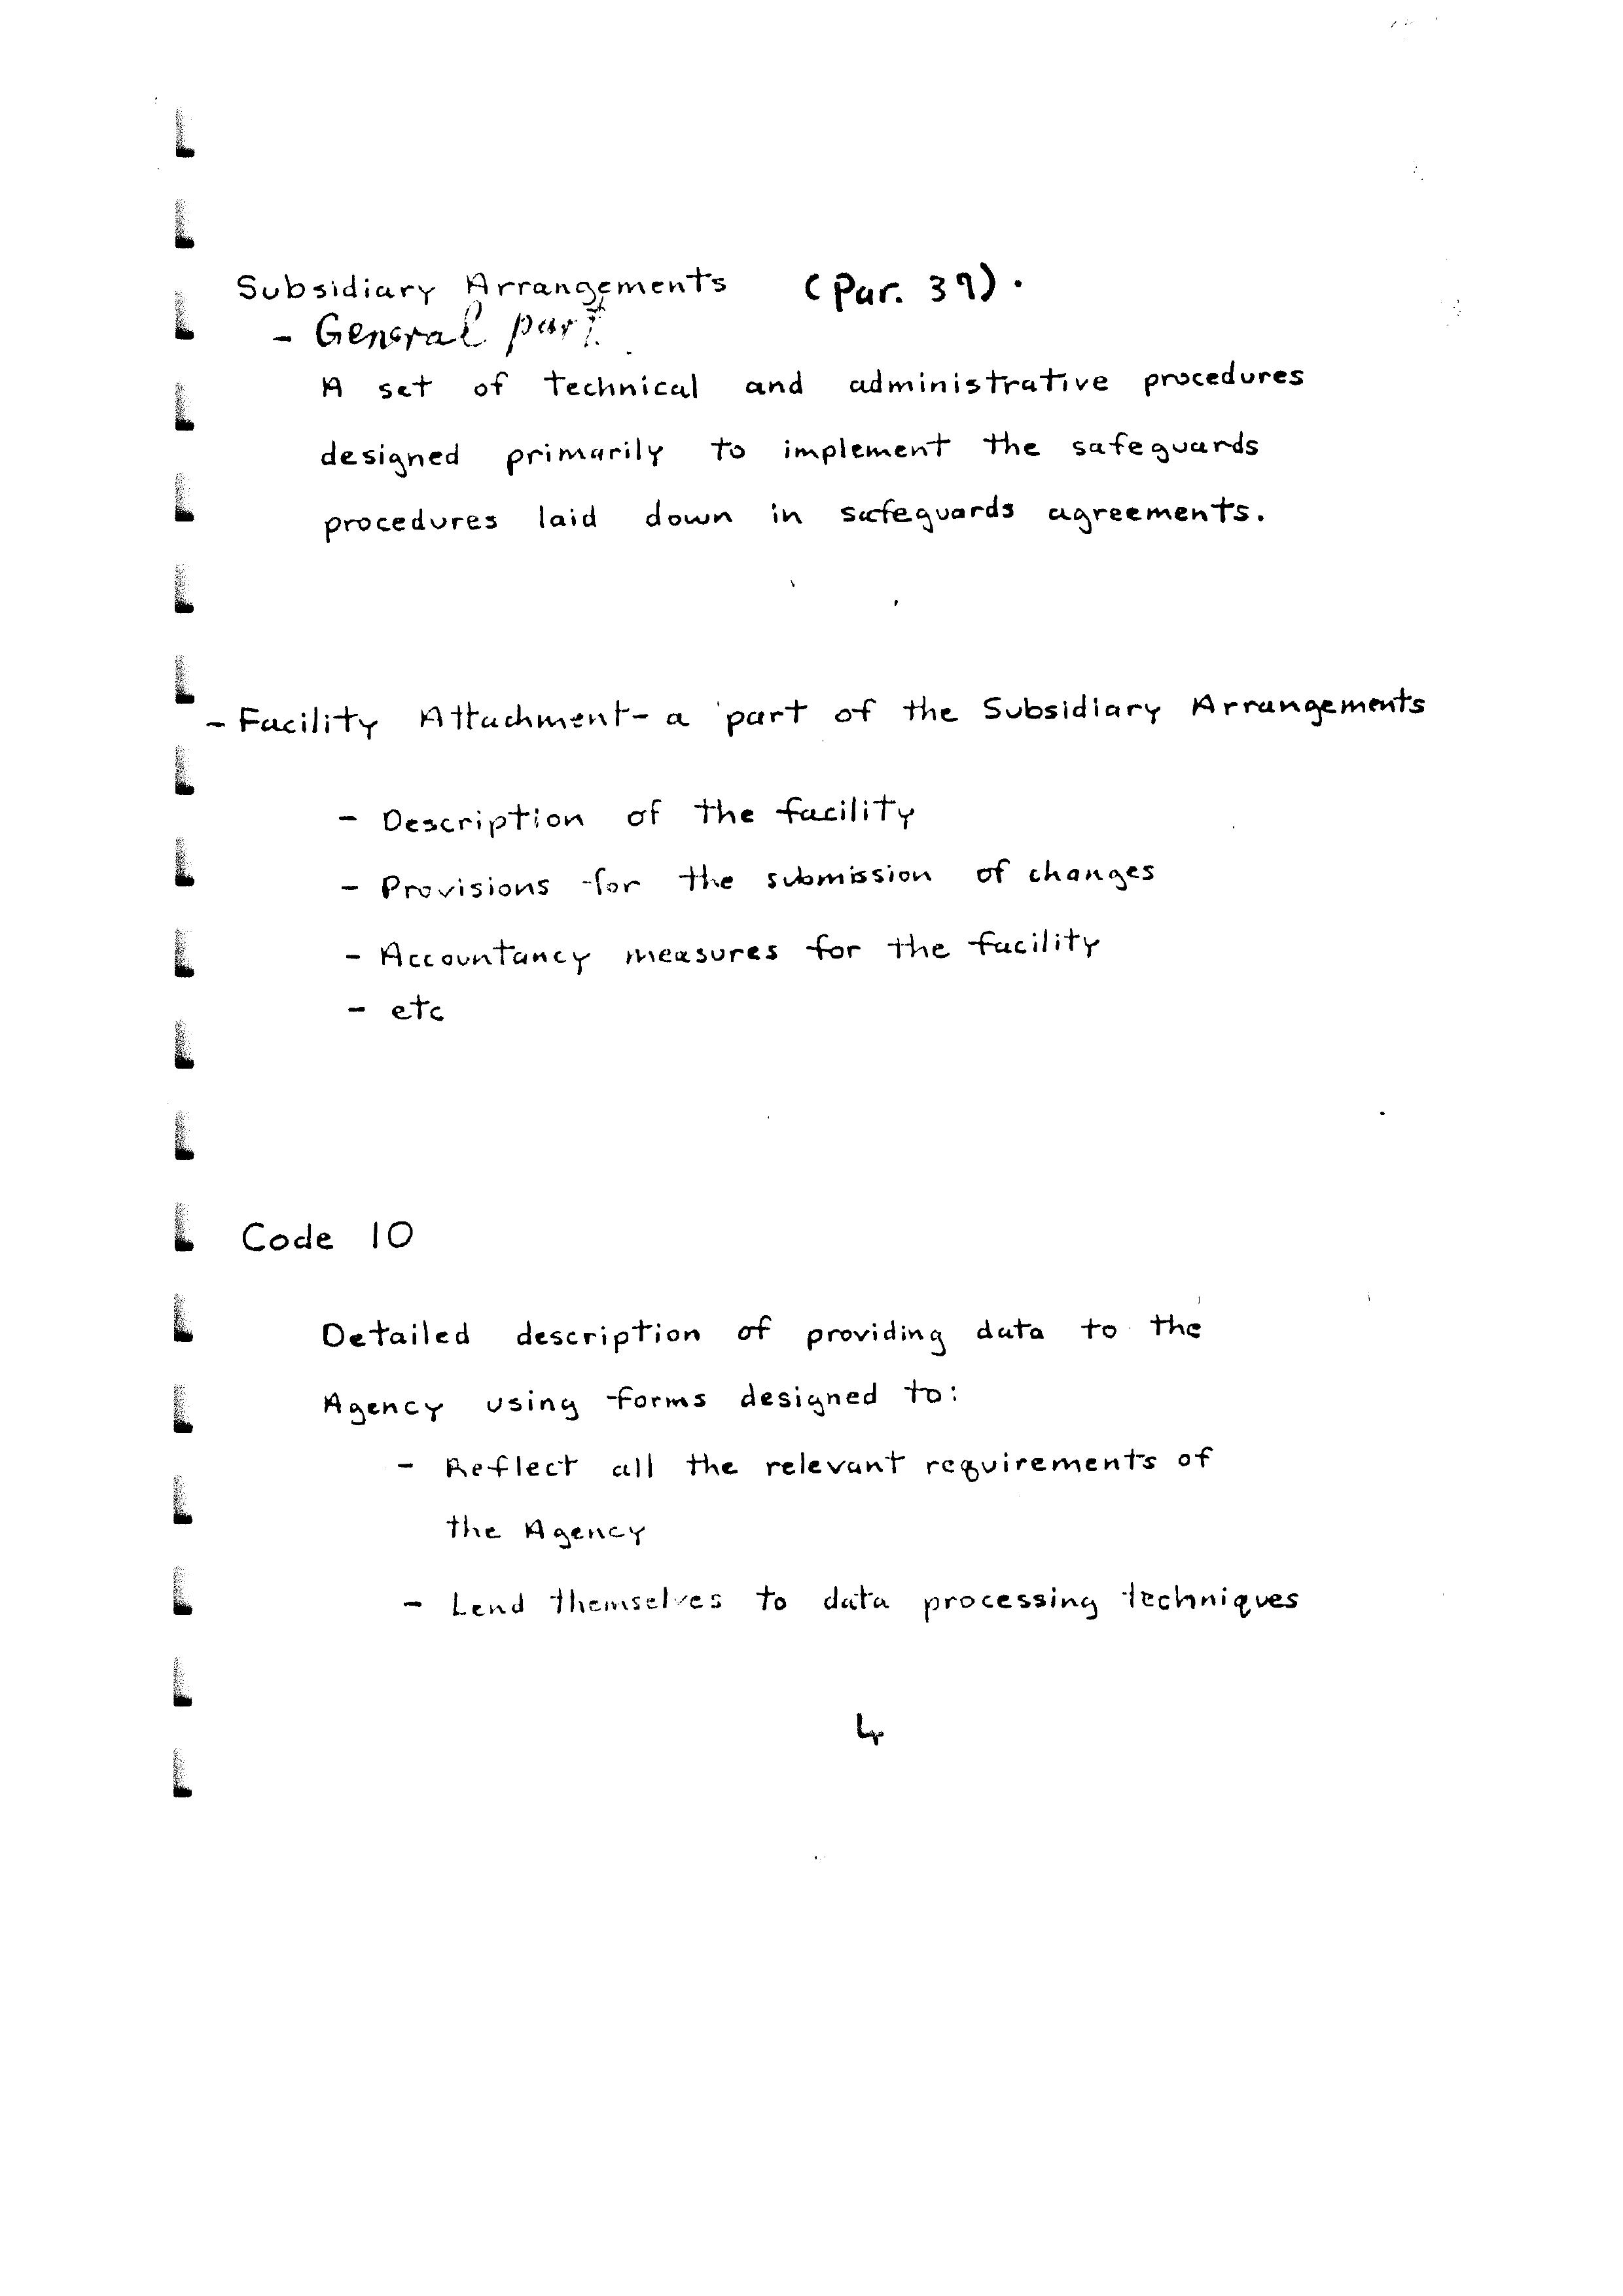 Subsidiary Arrangements (Par. 39).
- General part
A set of technical and administrative procedures
designed primarily to implement the safeguards
procedures laid down in safeguards agreements.
- Facility Attachment - a part of the Subsidiary Arrangements
- Description of the facility
- Provisions for the submission of changes
- Accountancy measures for the facility
- etc
Code 10
Detailed description of providing data to the
Agency using forms designed to:
- Reflect all the relevant requirements of
the Agency
- Lend themselves to data processing techniques
4